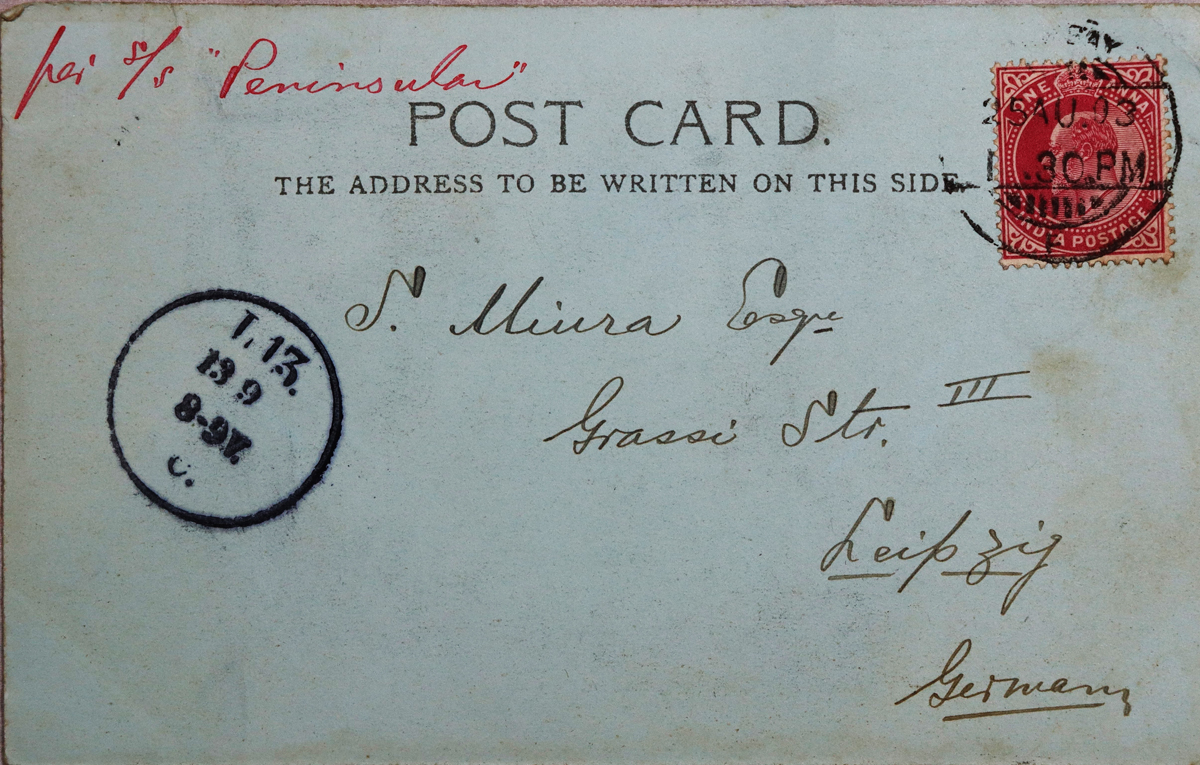 per S/S "Peninsular"
POST CARD.
THE ADDRESS TO BE WRITTEN ON THIS SIDE
ONE
INDIA POSTAGE
AU.03
.30.PM
S. Miura Esqre
Grassi Str. III
Leipzig
Germany
L.13.
13 9
8-9V.
c.